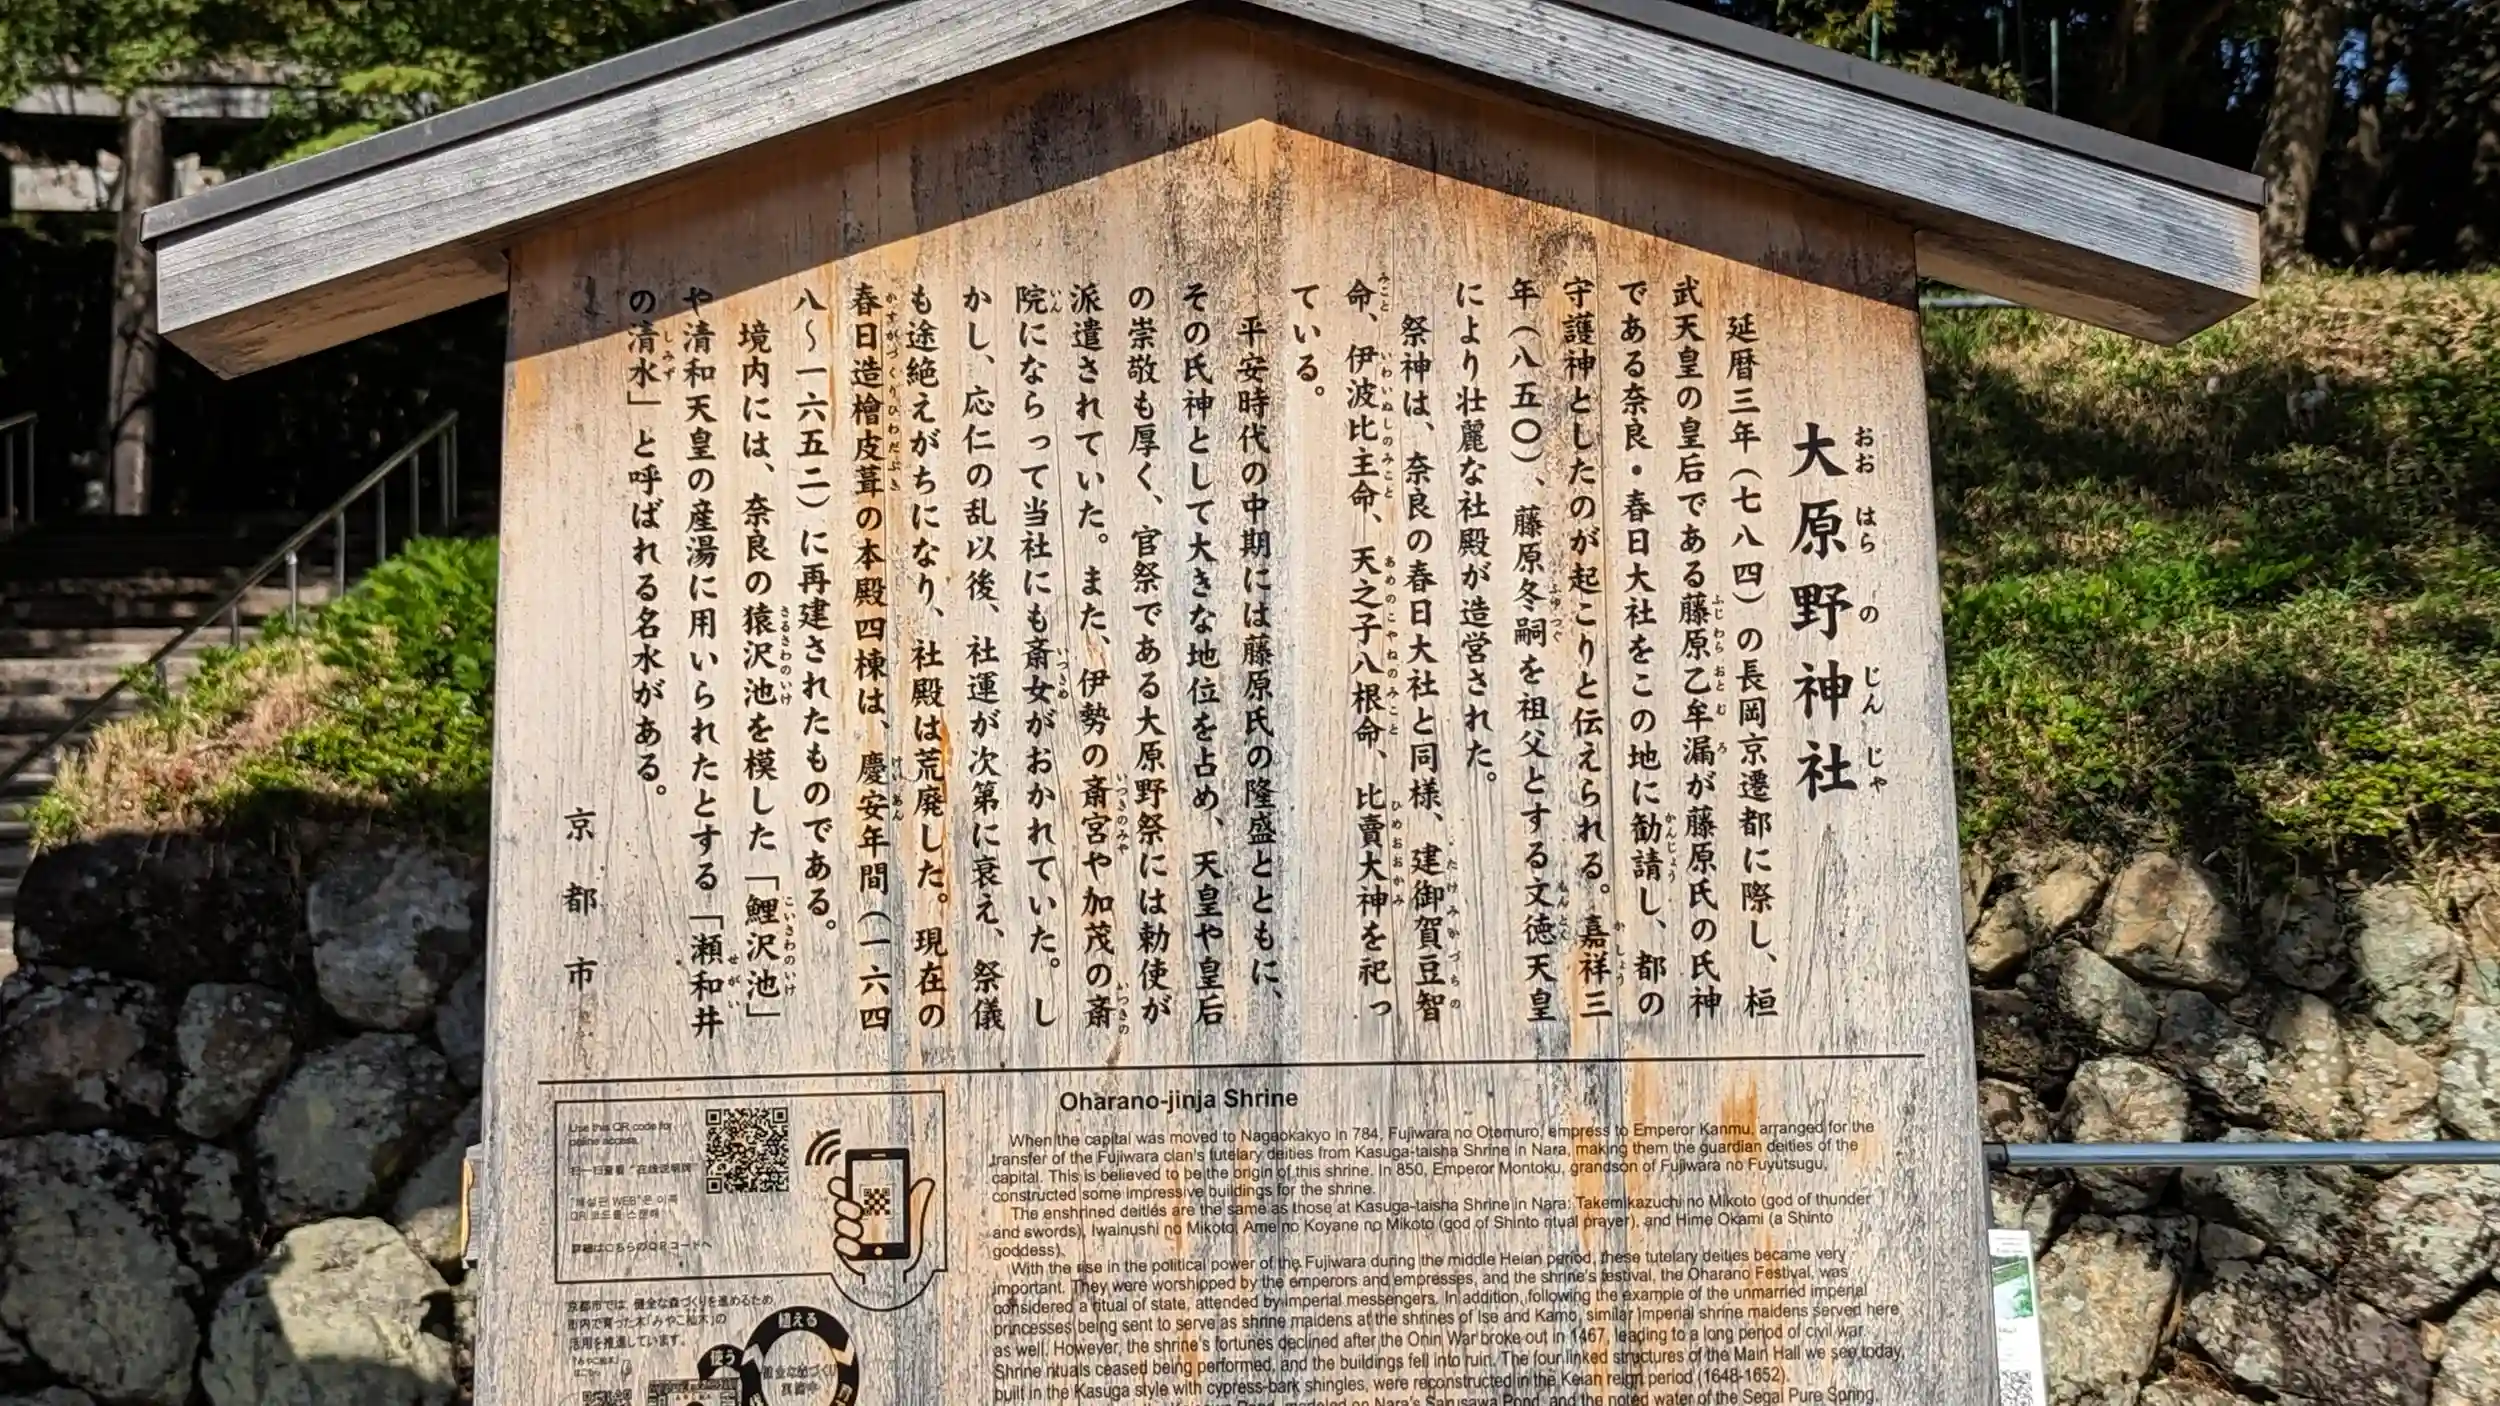 大原野神社
延暦三年(七八四)の長岡京遷都に際し、桓
武天皇の皇后である藤原乙牟漏が藤原氏の氏神
である奈良・春日大社をこの地に勧請し、都の
守護神としたのが起こりと伝えられる。嘉祥三
年(八五〇)、藤原冬嗣を祖父とする文徳天皇
により壮麗な社殿が造営された。
祭神は、奈良の春日大社と同様、建御賀豆智
命、伊波比主命、天之子八根命、比賣大神を祀っ
ている。
平安時代の中期には藤原氏の隆盛とともに、
その氏神として大きな地位を占め、天皇や皇后
の崇敬も厚く、官祭である大原野祭には勅使が
派遣されていた。また、伊勢の斎宮や加茂の斎
院にならって当社にも斎女がおかれていた。し
かし、応仁の乱以後、社運が次第に衰え、祭儀
も途絶えがちになり、社殿は荒廃した。現在の
春日造檜皮葺の本殿四棟は、慶安年間(一六四
八~一六五二)に再建されたものである。
境内には、奈良の猿沢池を模した「鯉沢池」
や清和天皇の産湯に用いられたとする「瀬和井
の清水」と呼ばれる名水がある。
京都市
Use this QR code for
online access.
扫一扫查看“在线说明牌”
"해설판 WEB"은 이쪽
QR 코드를 스캔해
詳細はこちらのQRコードへ
京都市では、健全な森づくりを進めるため、
市内で育った木「みやこ杣木」の
活用を推進しています。
植える
使う
Oharano-jinja Shrine
When the capital was moved to Nagaokakyo in 784, Fujiwara no Otomuro, empress to Emperor Kanmu, arranged for the
transfer of the Fujiwara clan's tutelary deities from Kasuga-taisha Shrine in Nara, making them the guardian deities of the
capital. This is believed to be the origin of this shrine. In 850, Emperor Montoku, grandson of Fujiwara no Fuyutsugu,
constructed some impressive buildings for the shrine.
The enshrined deities are the same as those at Kasuga-taisha Shrine in Nara: Takemikazuchi no Mikoto (god of thunder
and swords), Iwainushi no Mikoto, Ame no Koyane no Mikoto (god of Shinto ritual prayer), and Hime Okami (a Shinto
goddess).
With the rise in the political power of the Fujiwara during the middle Heian period, these tutelary deities became very
important. They were worshipped by the emperors and empresses, and the shrine's festival, the Oharano Festival, was
considered a ritual of state, attended by imperial messengers. In addition, following the example of the unmarried imperial
princesses being sent to serve as shrine maidens at the shrines of Ise and Kamo, similar imperial shrine maidens served here
as well. However, the shrine's fortunes declined after the Onin War broke out in 1467, leading to a long period of civil war.
Shrine rituals ceased being performed, and the buildings fell into ruin. The four linked structures of the Main Hall we see today,
built in the Kasuga style with cypress-bark shingles, were reconstructed in the Keian reign period (1648-1652).
Pond, modeled on Nara's Sarusawa Pond, and the noted water of the Segai Pure Spring,